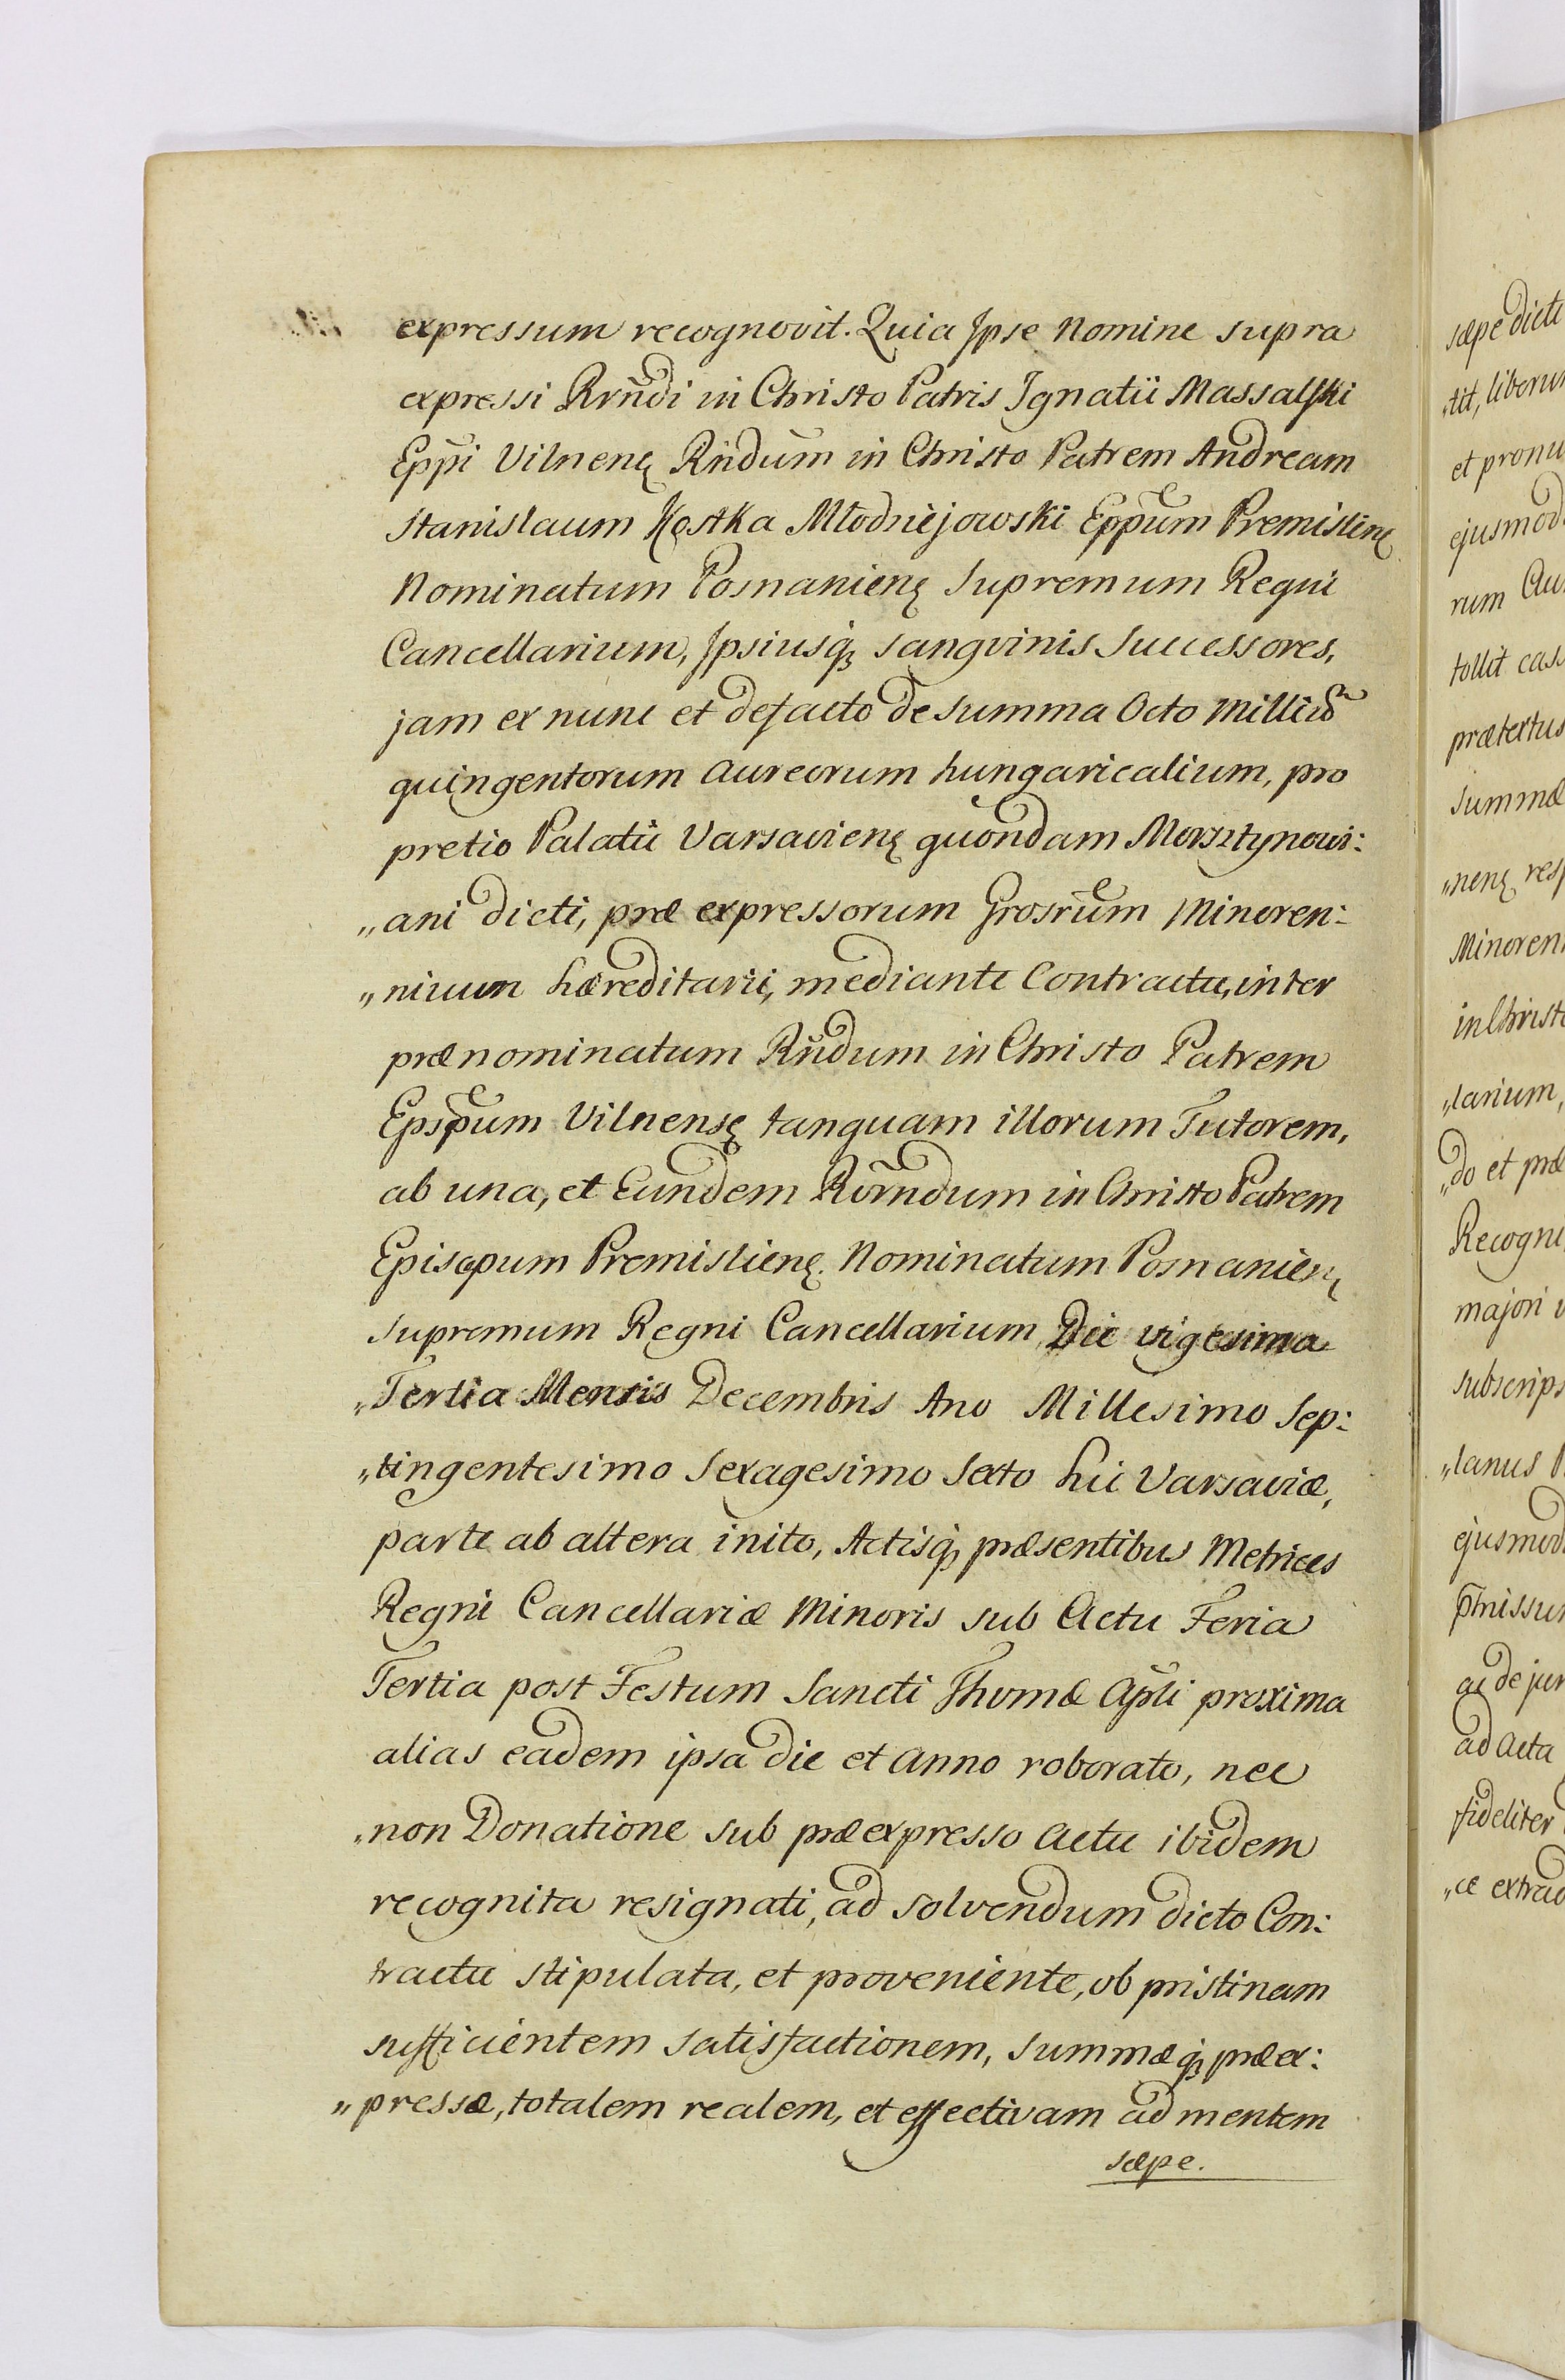 expressum recognovit. Quia Ipse Nomine supra
expressi Rrñdi in Christo Patris Ignatii Massalski
Eppi Vilnenę Rñdum in Christo Patrem Andream
Stanislaum Kostka Młodziejowski Eppum Premislinę
Nominatum Posnanienę Supremum Regni
Cancellarium, Ipsiusq; sangvinis Successores,
jam ex nunc et defacto de summa Octo Milliũ
quingentorum Aureorum hungaricalium, pro
pretio Palatii Varsavienę quondam Morsztynowi:
„ani dicti, præ expressorum Grosrum Minoren:
„nium hæreditarii, mediante Contractu, inter
prænominatum Rñdum in Christo Patrem
Epspum Vilnensę tanquam illorum Tutorem,
ab una, et Eundem Rõrndum in Christo Patrem
Episcpum Premislienę. Nominatum Posnanienę
Supremum Regni Cancellarium, Die vigesima
„Tertia Mensis Decembris Ano Millesimo Sep:
„tingentesimo Sexagesimo Sexto hic Varsaviæ,
parte ab altera inito, Actisq; præsentibus Metrices
Regni Cancellariæ Minoris sub Actu Feria
Tertia post Festum Sancti Thomæ Apli proxima
alias eadem ipsa die et anno roborato, nec
„non Donatione sub præexpresso Actu ibidem
recognita resignati, ad solvendum dicto Con:
tractu stipulata, et proveniente, ob pristinam
sufficientem satisfactionem, Summæq; præex:
„pressæ, totalem realem, et effectivam ad mentem
sæpe.
sæpe dicti
„tit, liborum
et pronu
ejusmod
rum Au
tollit cas
prætextus
Summæ
„nenę resp
Minoren
in Christo
„larium,
„do et præ
Recogni
majori
subscrips
„lanus
ejusmod
pmissum
ac de jur
ad Acta
fideliter
„æ extrad